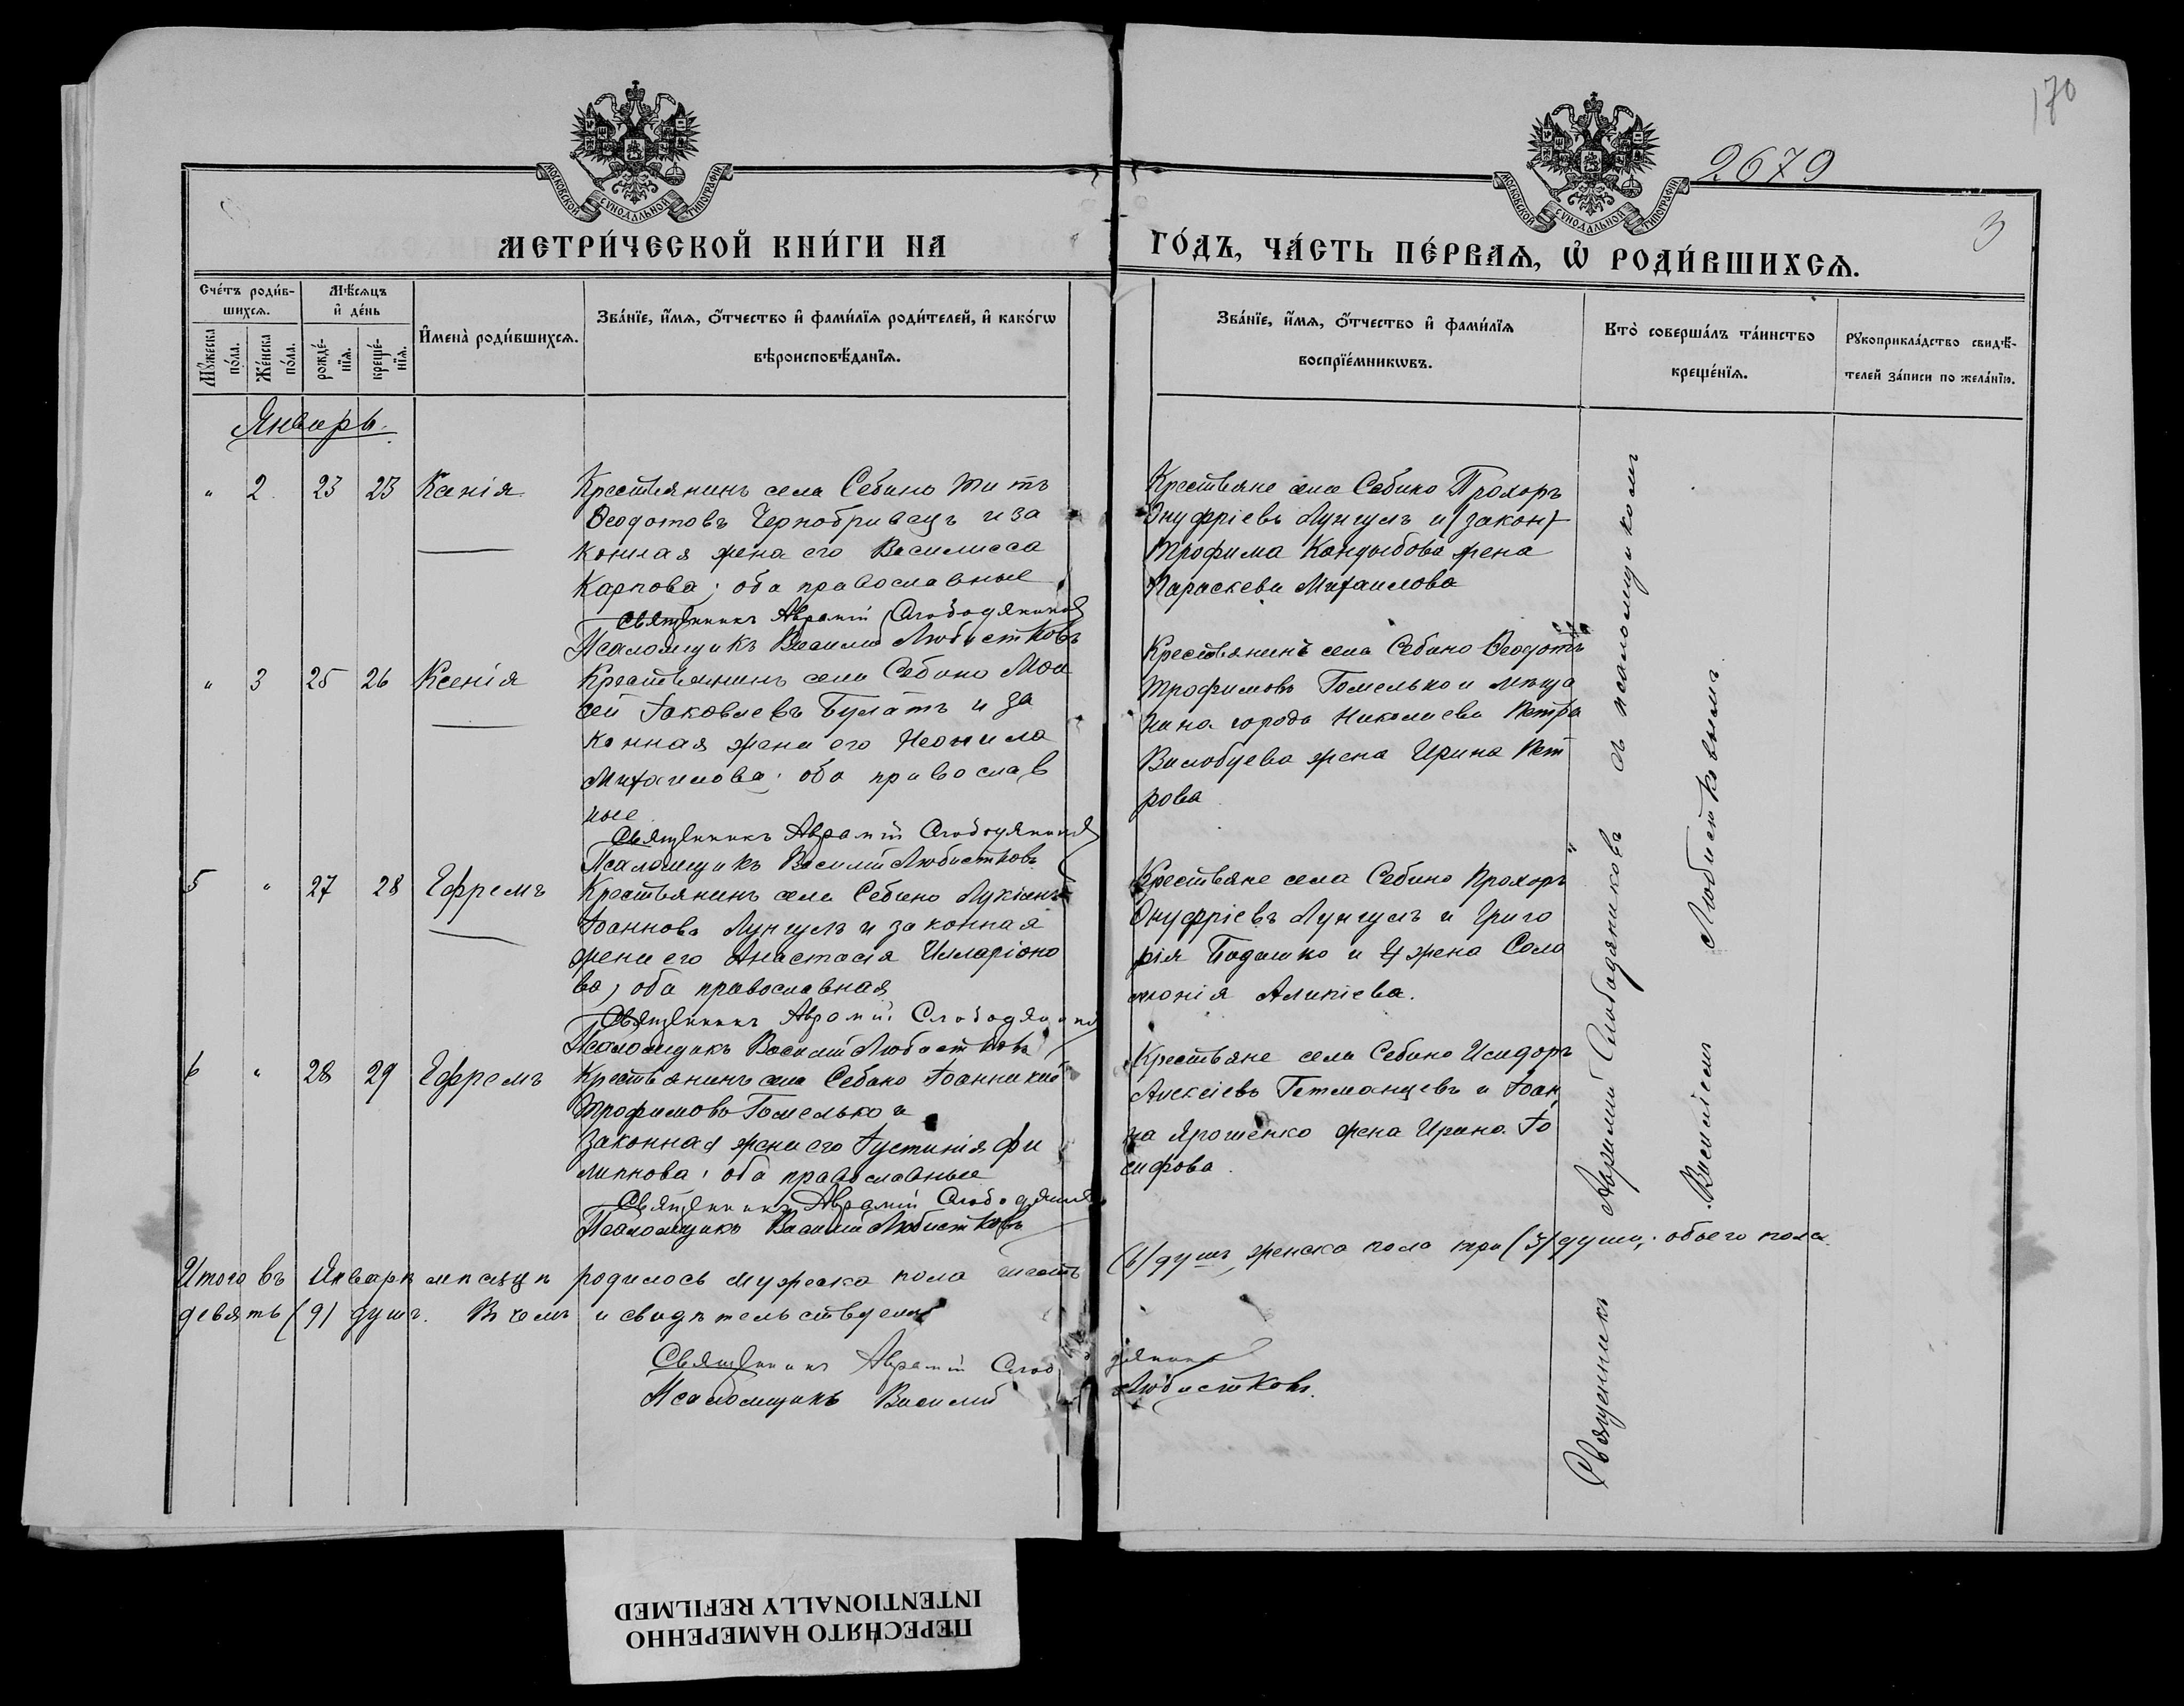 170
2679
3
МОСКОВСКОЙ СѴНОДАЛЬНОЙ ТИПОГРАФІИ
МОСКОВСКОЙ СѴНОДАЛЬНОЙ ТИПОГРАФІИ
МЕТРИ́ЧЕСКОЙ КНИ́ГИ НА
ГО́ДЪ, ЧА́СТЬ ПЕ́РВАѦ, Ѡ҆ РОДИ́ВШИХСѦ.
Сче́тъ роди́в-
шихсѧ.
Мꙋ́жеска по́ла.
Же́нска по́ла.
Мѣ́сѧцъ
и҆ де́нь
рожде́-
нїѧ.
креще́-
нїѧ.
И҆мена̀ роди́вшихсѧ.
Зва́нїе, и҆́мѧ, ѻ҆́тчество и҆ фами́лїѧ роди́телей, и҆ како́гѡ
вѣроисповѣ́данїѧ.
Зва́нїе, и҆́мѧ, ѻ҆́тчество и҆ фами́лїѧ
воспрїе́мникѡвъ.
Кто̀ соверша́лъ та́инство
креще́нїѧ.
Рꙋкоприкла́дство свидѣ́-
телей за́писи по жела́нїю.
Январь.
" 2 23 23 Ксенія
Крестьянинъ села Себино Титъ
Ѳеодотовъ Чернобривецъ и за
конная жена его Василисса
Карпова; оба православные
Священникъ Аврамій Слободяниковъ
Псаломщикъ Василій Любистковъ
Крестьяне села Себино Прохоръ
Онуфріевъ Лунгулъ и (закон)
Трофима Кандыбова жена
Параскева Михаилова
" 3 25 26 Ксенія
Крестьянинъ села Себино Мои
сей Іаковлевъ Булатъ и за
конная жена его Неонила
Михаилова; оба православ
ные
Священникъ Аврамій Слободяниковъ
Псаломщикъ Василій Любистковъ
Крестьянинъ села Себино Ѳеодотъ
Трофимовъ Гомелько и мѣща
нина города Николаева Петра
жена Ирина Пет
рова
5 " 27 28 Ефремъ
Крестьянинъ села Себино Лукіанъ
Іоанновъ Лунгулъ и законная
жена его Анастасія Илларіоно
ва; оба православная
Священникъ Аврамій Слободяниковъ
Псаломщикъ Василій Любистковъ
Крестьяне села Себино Прохоръ
Онуфріевъ Лунгулъ и Григо
рія и жена Соло
монія Алипіева.
6 " 28 29 Ефремъ
Крестьянинъ села Себино Іоанникій
Трофимовъ Гомелько и
законная жена его Іустинія Фи
липпова; оба православные
Священникъ Аврамій Слободяниковъ
Псаломщикъ Василій Любистковъ
Крестьяне села Себино Исидоръ
Алексіевъ Гетманцевъ и Іоан
на Ярошенко жена Ирина Іо
сифова.
Священникъ Аврамій Слободяниковъ съ псаломщикомъ
Василіемъ Любистковымъ
Итого въ Январѣ мѣсяцѣ родилось мужеска пола шесть (6) душъ, женска пола три (3) души, обоего пола
девять (9) душъ. Въ чемъ и свидѣтельствуемъ
Священникъ Аврамій Слободяниковъ
Псаломщикъ Василій Любистковъ.
ПЕРЕСНЯТО НАМЕРЕННО
INTENTIONALLY REFILMED